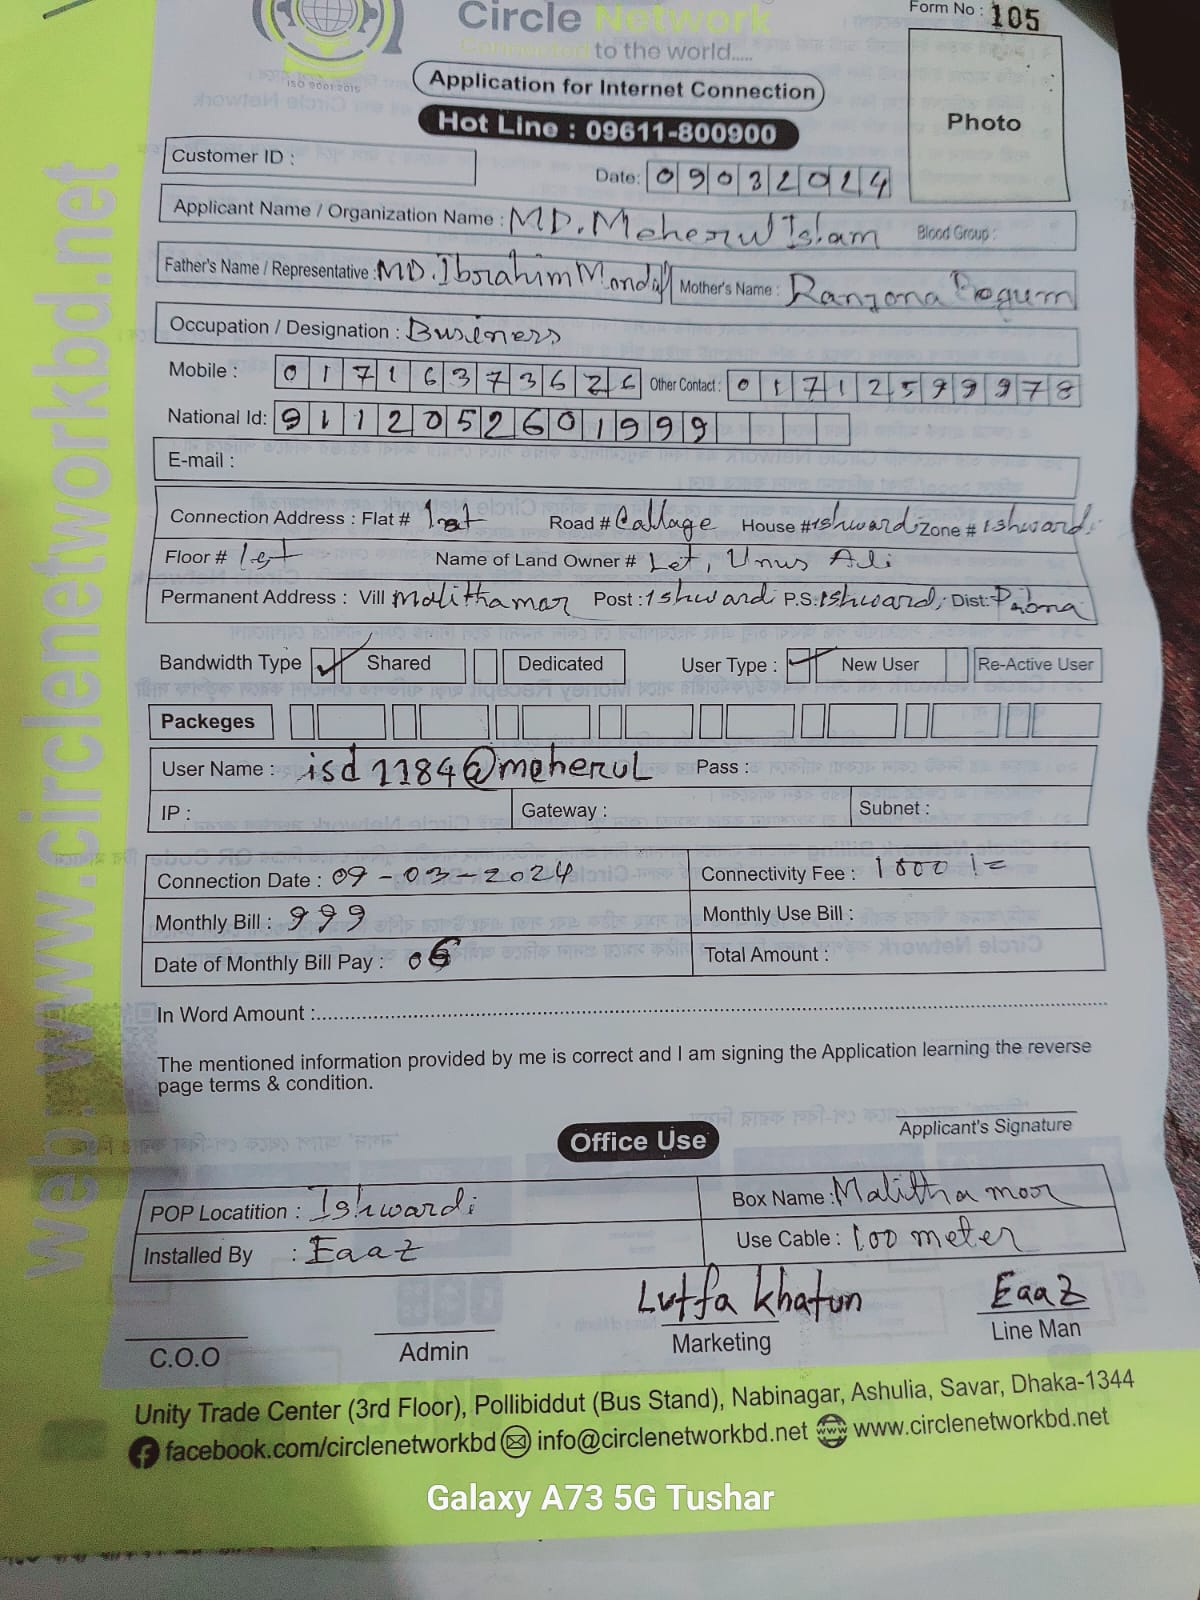 Circle Network
Form No : 105
Connected to the world.....
ISO 9001:2015
Application for Internet Connection
Photo
Hot Line : 09611-800900
Customer ID :
Date: 09032024
Applicant Name / Organization Name : MD. Meherul Islam Blood Group :
Father's Name / Representative : MD. Ibrahim Mondal Mother's Name : Ranzona Begum
Occupation / Designation : Business
Mobile : 01716373626 Other Contact : 01712599978
National Id: 9112052601999
E-mail :
Connection Address : Flat # 1st Road # Callage House # Ishwardi Zone # Ishwardi
Floor # 1st Name of Land Owner # Let, Unus Ali
Permanent Address : Vill Malithamor Post : Ishwardi P.S: Ishwardi Dist: Pabna
Bandwidth Type ✓ Shared Dedicated User Type : ✓ New User Re-Active User
Packeges
User Name : isd1184@meherul Pass :
IP : Gateway : Subnet :
Connection Date : 09-03-2024 Connectivity Fee : 1000/=
Monthly Bill : 999 Monthly Use Bill :
Date of Monthly Bill Pay : Total Amount :
In Word Amount :
The mentioned information provided by me is correct and I am signing the Application learning the reverse
page terms & condition.
Applicant's Signature
Office Use
POP Locatition : Ishwardi Box Name : Malithamoor
Installed By : Eaaz Use Cable : 100 meter
Lutfa Khatun Eaaz
C.O.O Admin Marketing Line Man
Unity Trade Center (3rd Floor), Pollibiddut (Bus Stand), Nabinagar, Ashulia, Savar, Dhaka-1344
facebook.com/circlenetworkbd info@circlenetworkbd.net www.circlenetworkbd.net
web: www.circlenetworkbd.net
Galaxy A73 5G Tushar